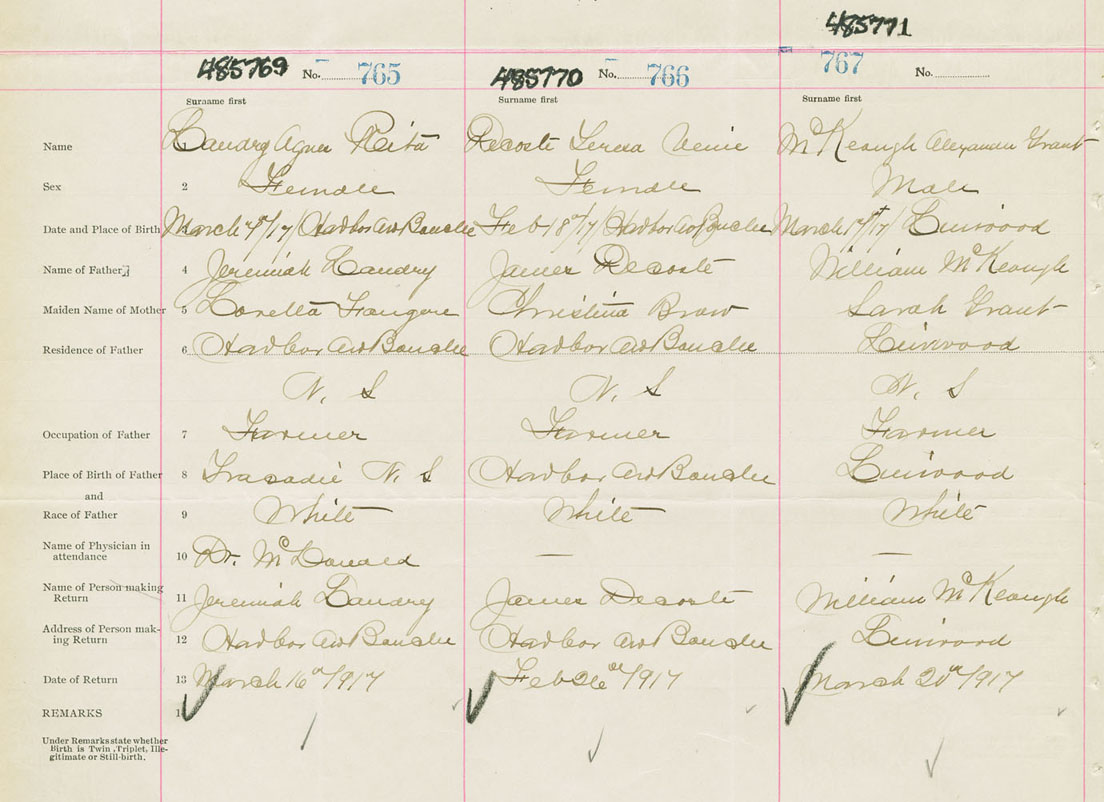 485771
485769 No. 765 485770 No. 766 767 No.
Surname first Surname first Surname first
Name Landry Agnes Rita Decoste Teresa McKeough Alexander Grant
Sex 2 Female Female Male
Date and Place of Birth March /17 Harbor au Bouche Feb 18/17 Harbor au Bouche March /17 Linwood
Name of Father 4 Jeremiah Landry James Decoste William McKeough
Maiden Name of Mother 5 Loretta Christina Brow Sarah Grant
Residence of Father 6 Harbor au Bouche Harbor au Bouche Linwood
N. S N. S N. S
Occupation of Father 7 Farmer Farmer Farmer
Place of Birth of Father 8 Tracadie N. S Harbor au Bouche Linwood
and
Race of Father 9 White White White
Name of Physician in
attendance 10 Dr. McDonald — —
Name of Person making
Return 11 Jeremiah Landry James Decoste William McKeough
Address of Person mak-
ing Return 12 Harbor au Bouche Harbor au Bouche Linwood
Date of Return 13 March 16th/1917 Feb 26th/1917 March 20th/1917
REMARKS
Under Remarks state whether
Birth is Twin, Triplet, Ille-
gitimate or Still-birth.